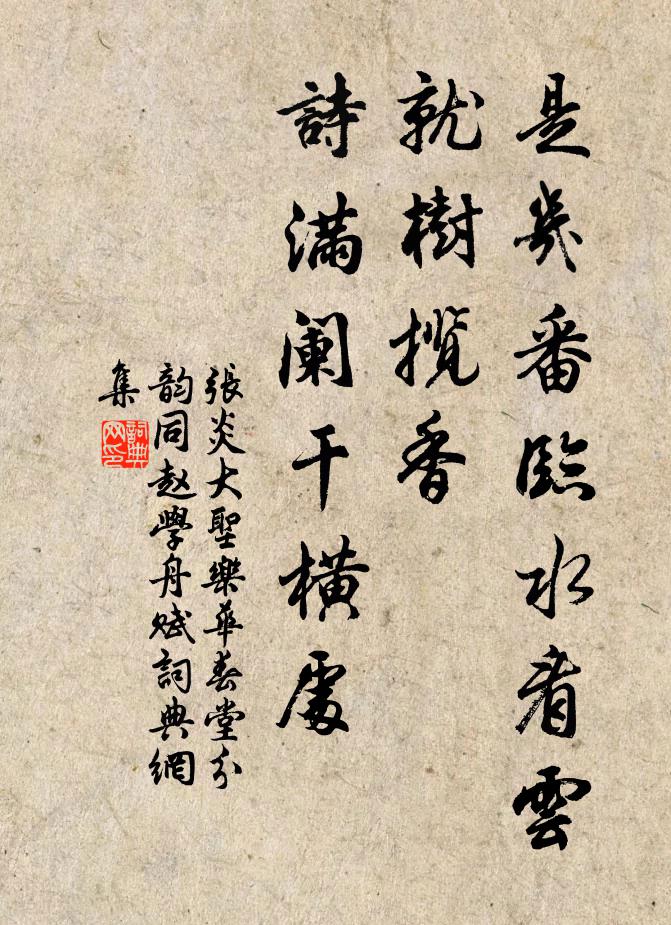 是幾番臨水看雲
就樹攬香
詩滿闌干橫處
張炎大聖樂華春堂分
韵同赵學舟賦詞典網
集
詞典
网印